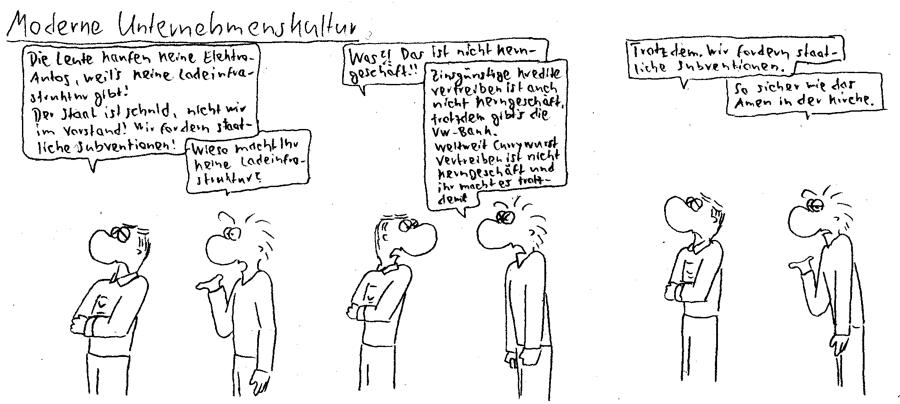 Moderne Unternehmenskultur
Die Leute kaufen keine Elektro-
Autos, weil's keine Ladeinfra-
struktur gibt!
Der Staat ist schuld, nicht wir
im Vorstand! Wir fordern staat-
liche Subventionen!
Wieso macht Ihr
keine Ladeinfra-
struktur?
Was?! Das ist nicht Kern-
geschäft!!
Zinsgünstige Kredite
vertreiben ist auch
nicht Kerngeschäft,
trotzdem gibt's die
VW-Bank.
Weltweit Currywurst
vertreiben ist nicht
Kerngeschäft und
ihr macht es trotz-
dem!
Trotzdem. Wir fordern staat-
liche Subventionen.
So sicher wie das
Amen in der Kirche.